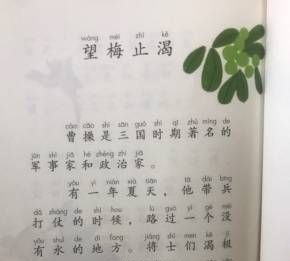 wàng méi zhǐ kě
望梅止渴
cáo cāo shì sān guó shí qī zhù míng de
曹操是三国时期著名的
jūn shì jiā hé zhèng zhì jiā
军事家和政治家。
yǒu yì nián xià tiān tā dài bīng
有一年夏天，他带兵
dǎ zhàng de shí hou lù guò yí gè méi
打仗的时候，路过一个没
yǒu shuǐ de dì fang jiàng shì men kě jí
有水的地方。将士们渴极